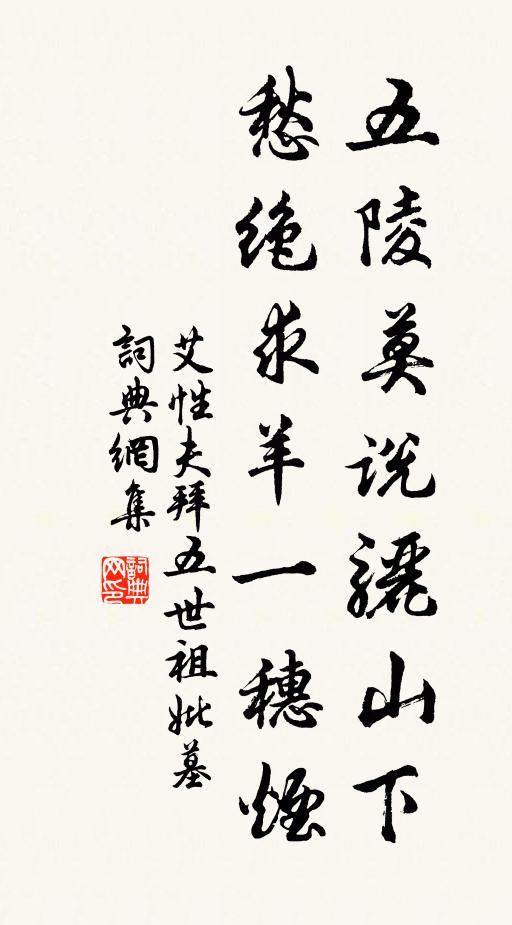 五陵莫说骊山下
愁绝求羊一穗煙
艾性夫拜五世祖妣墓
詞典網集
詞典网印